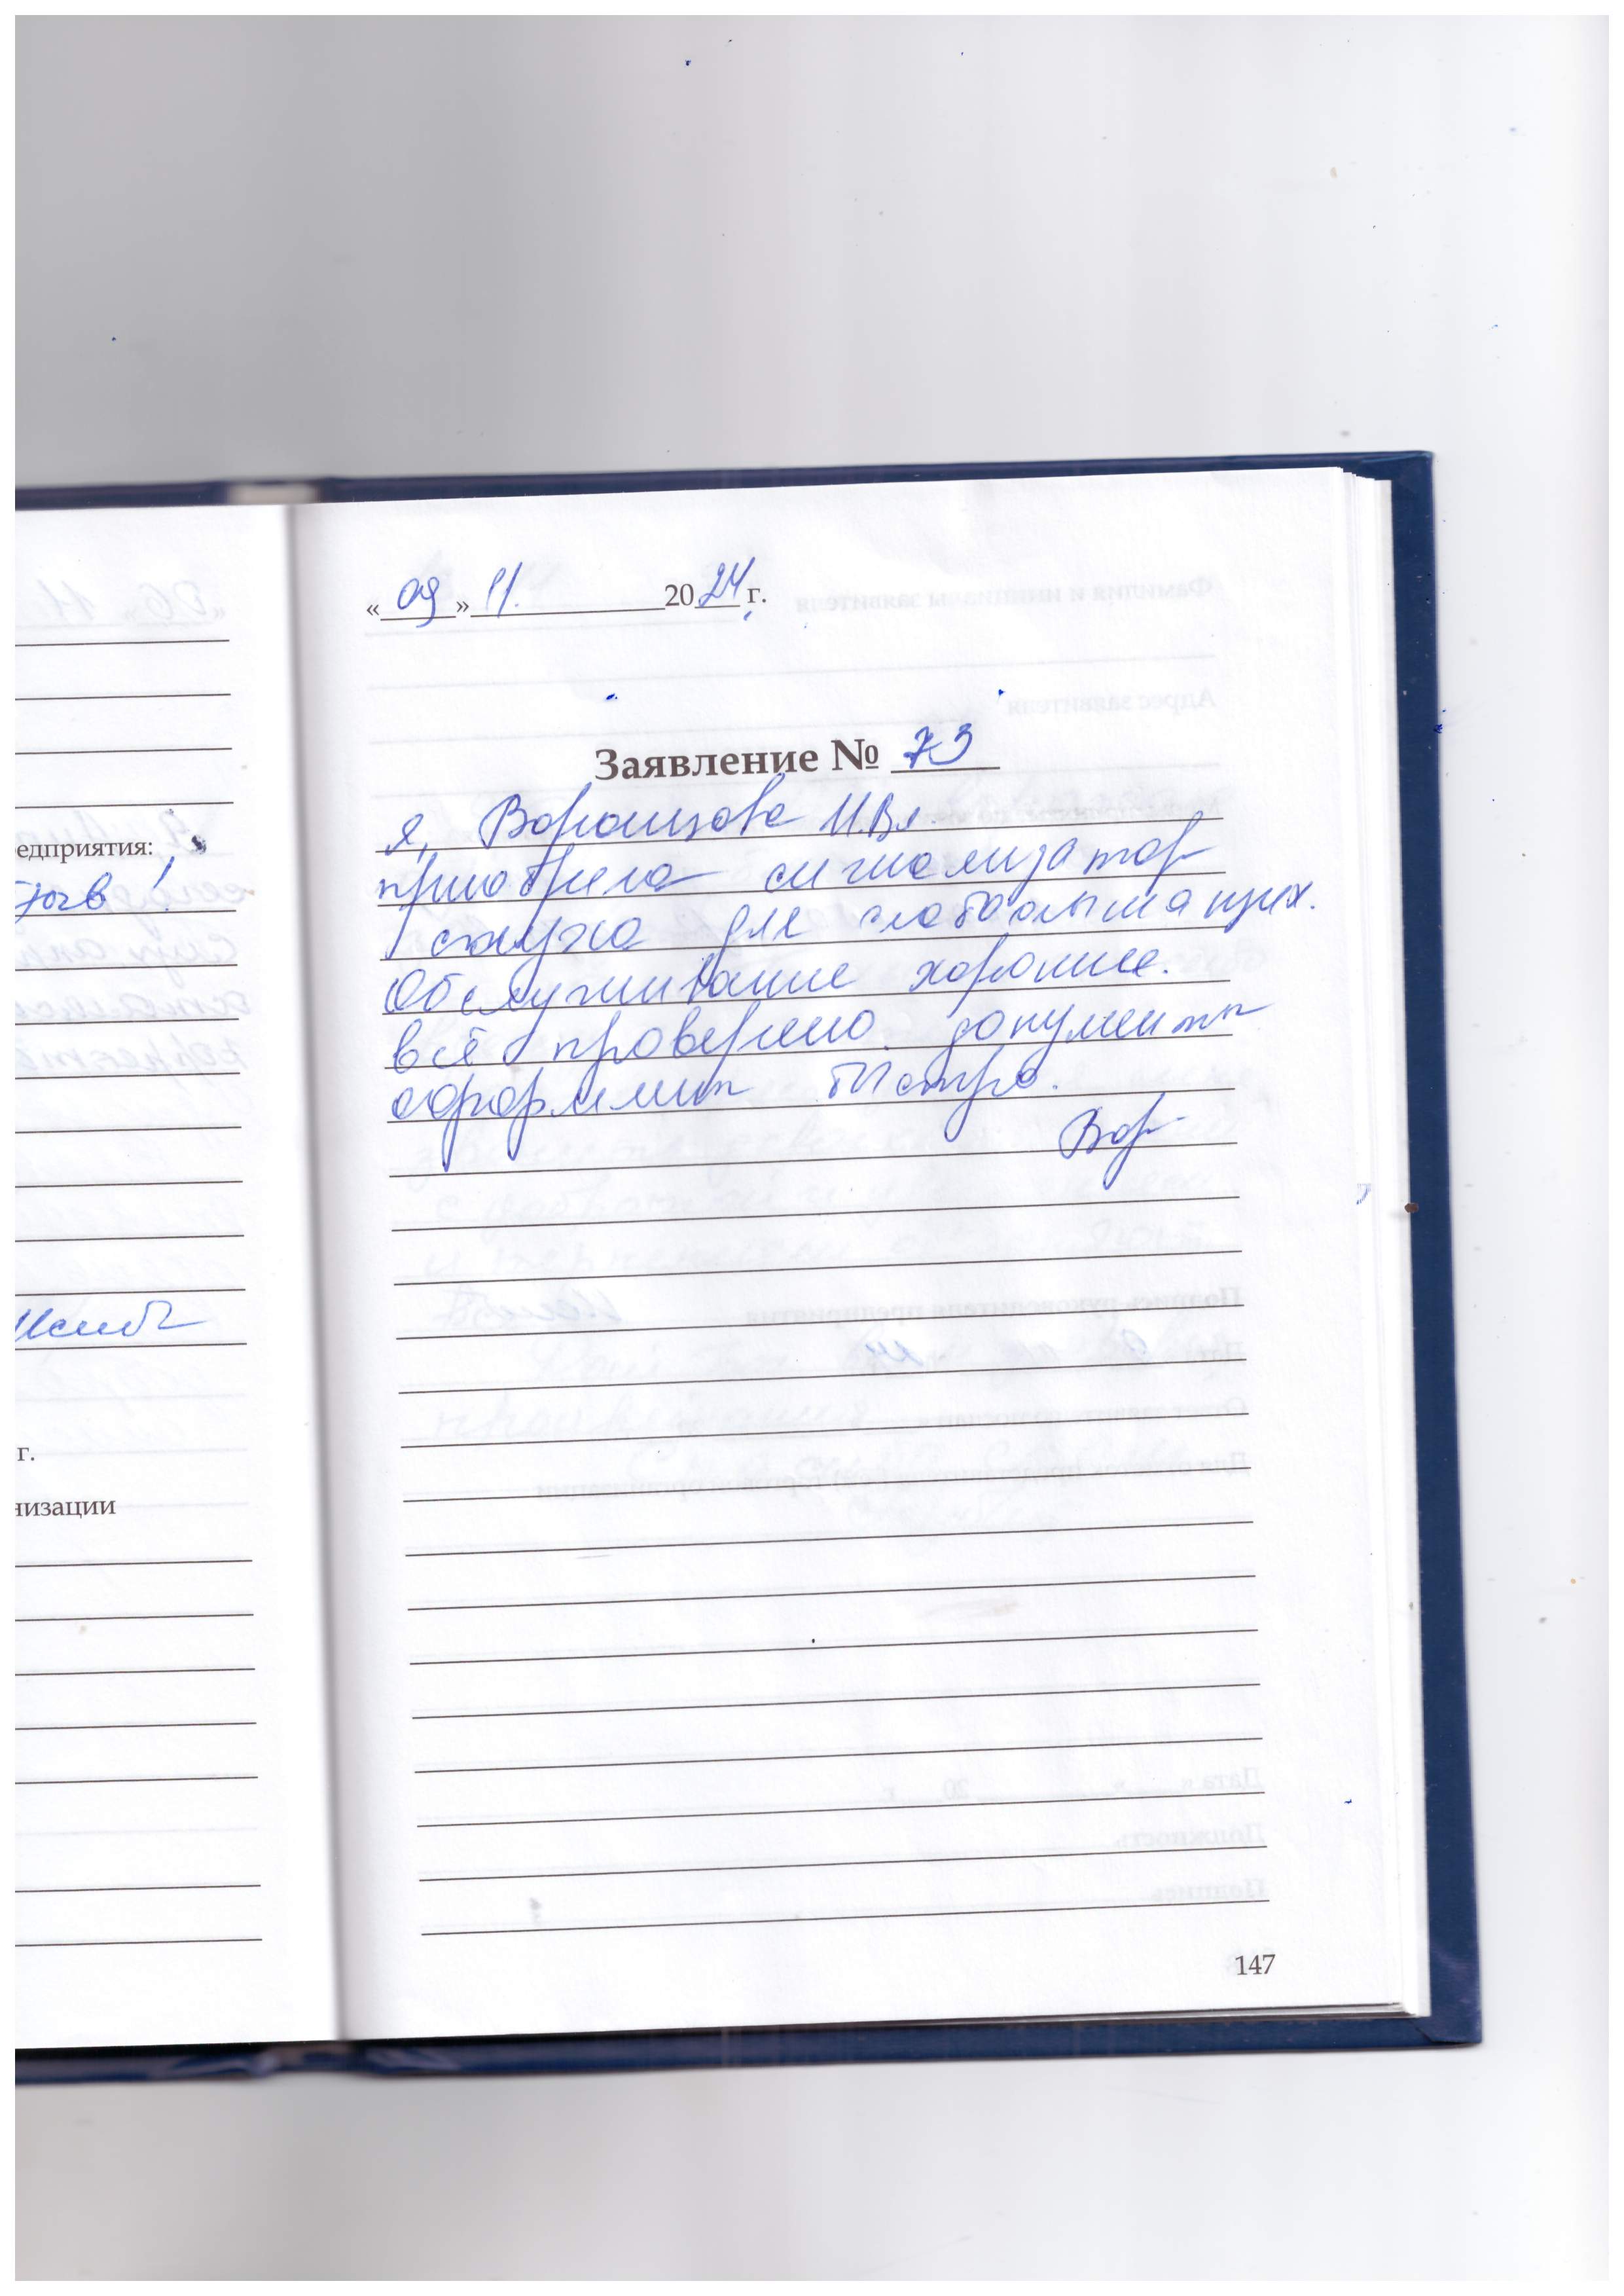 едприятия:
г.
низации
«09» 11. 2024 г.
Заявление № 73
Я, Воронцова И.Вл.
приобрела сигнализатор
звука для слабослышащих.
Обслуживание хорошее.
всё проверено. документы
оформили быстро.
Вор
147